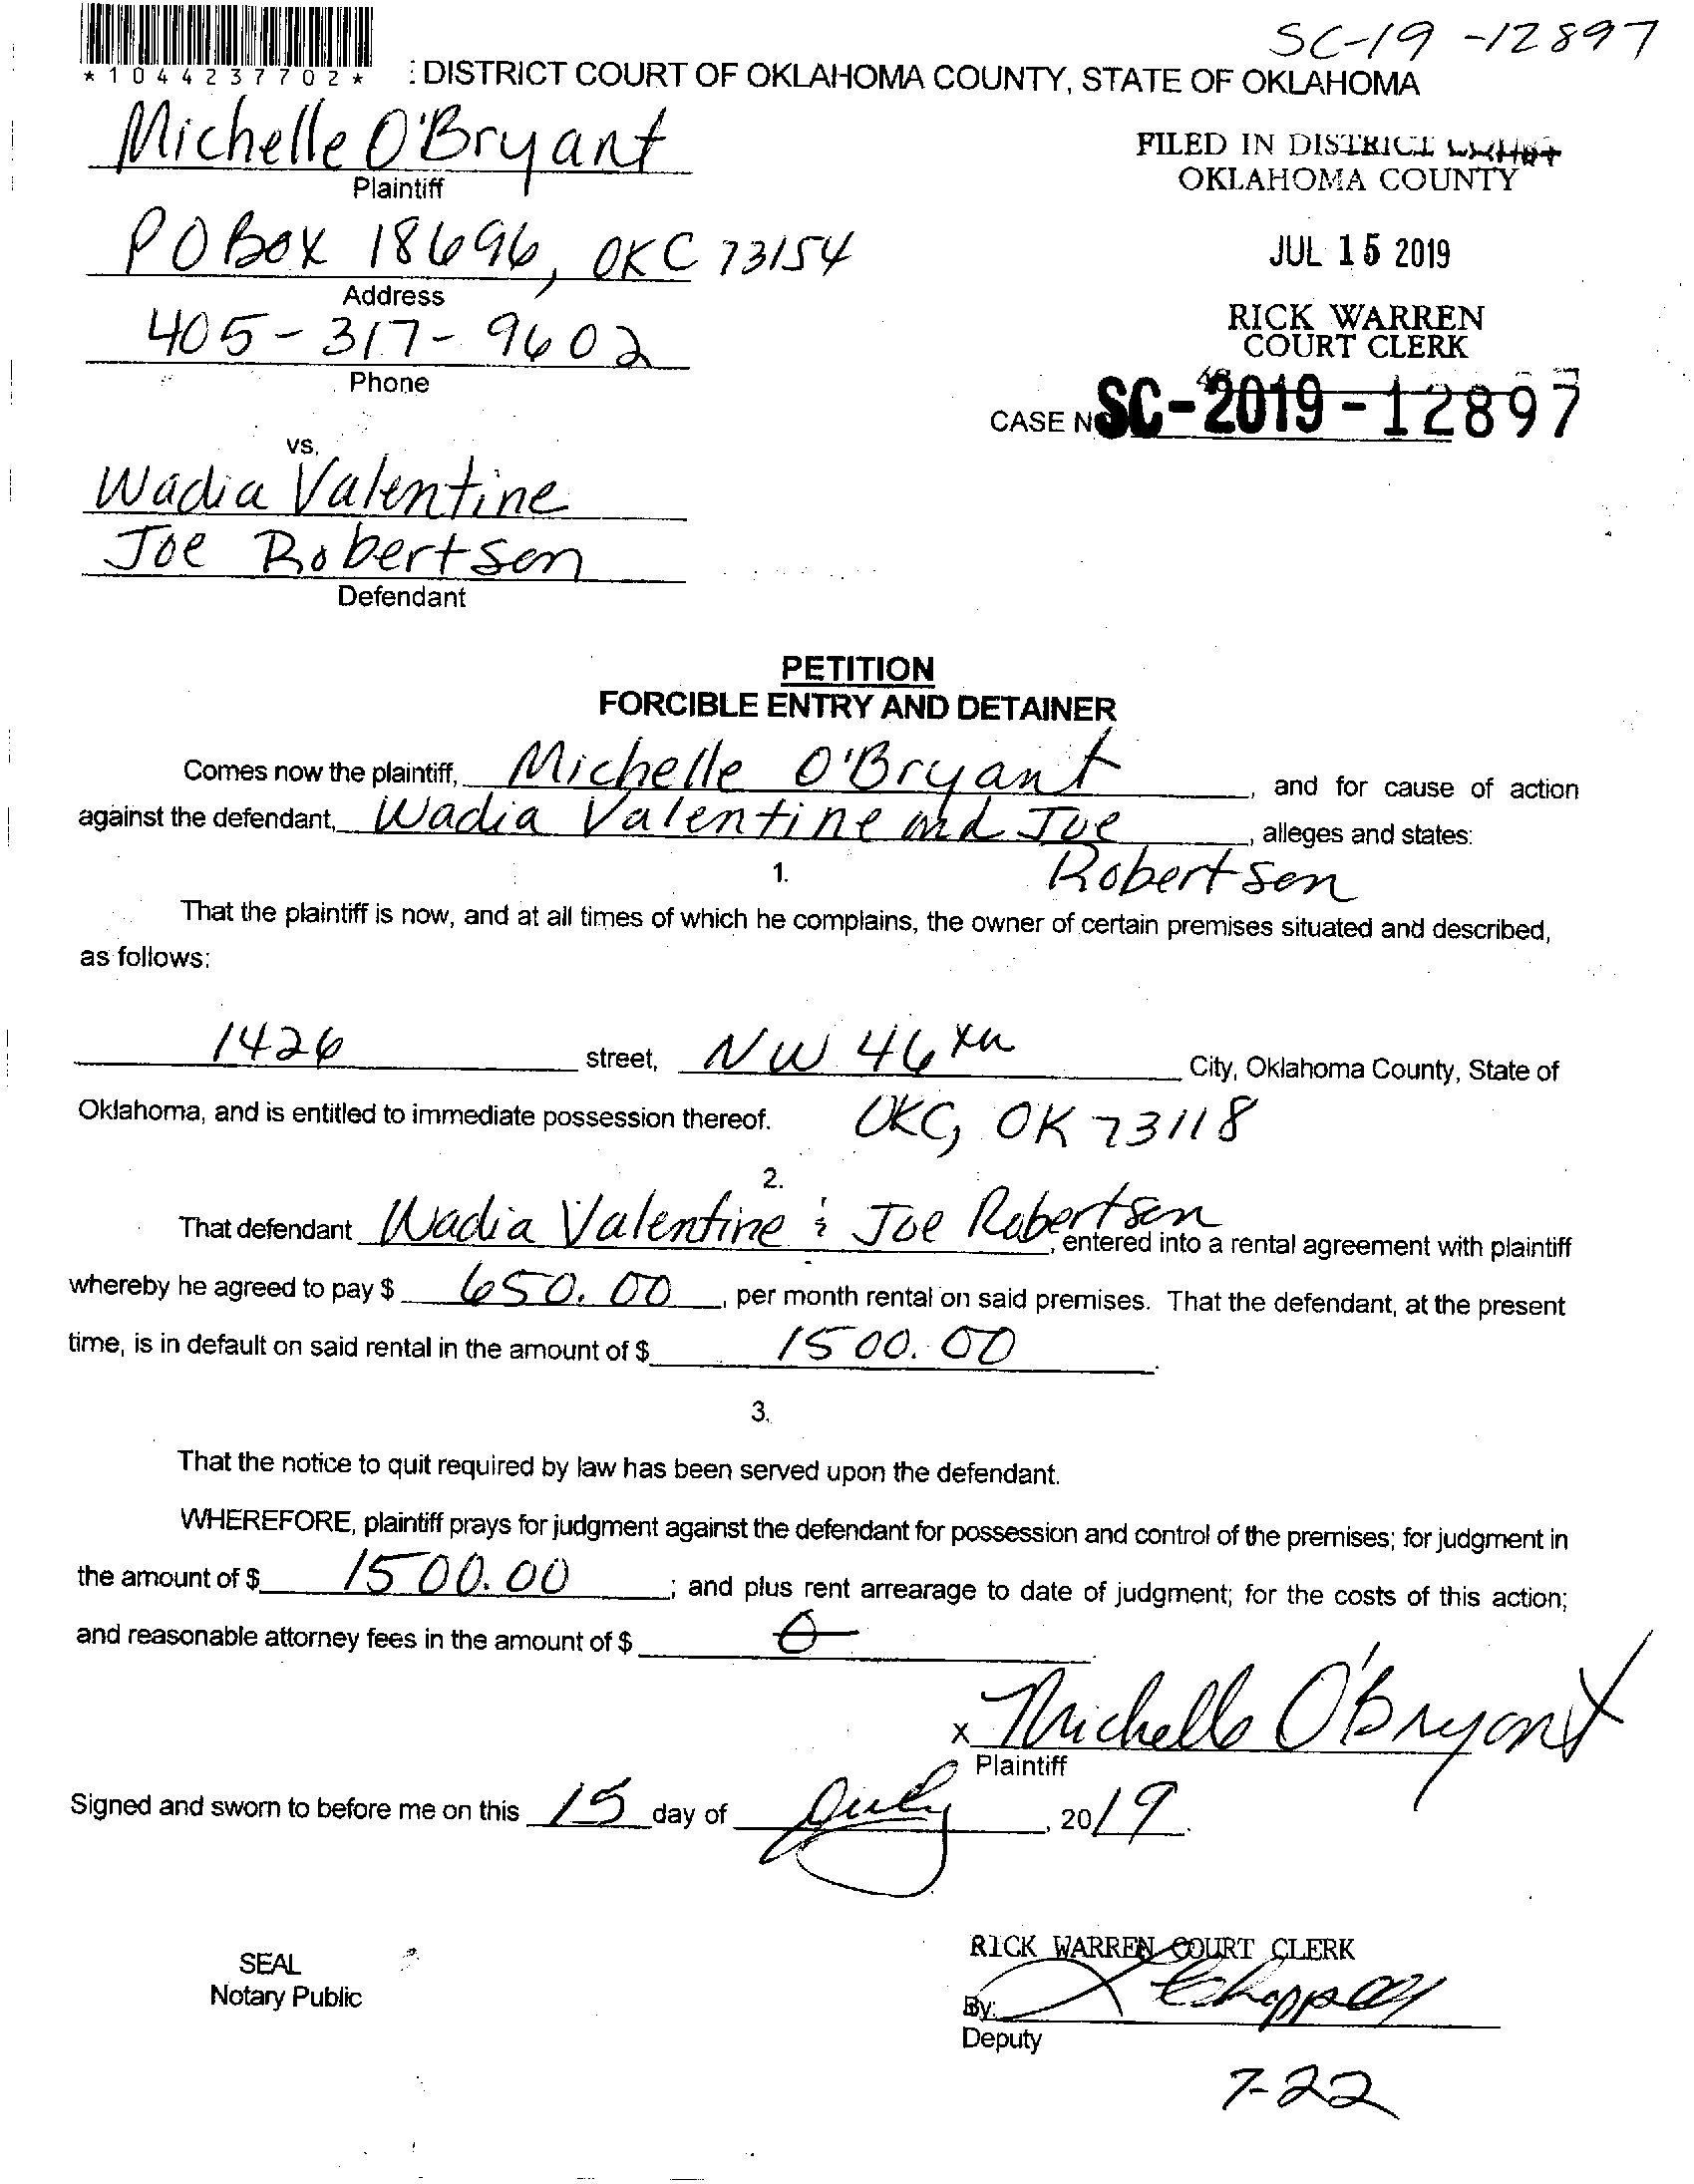 SC-19-12897
*1044237702*
: DISTRICT COURT OF OKLAHOMA COUNTY, STATE OF OKLAHOMA
Michelle O'Bryant
Plaintiff
FILED IN DISTRICT
OKLAHOMA COUNTY
PO Box 18696, OKC 73154
Address
JUL 15 2019
405-317-9602
Phone
RICK WARREN
COURT CLERK
CASE NO SC-2019-12897
vs.
Wadia Valentine
Joe Robertson
Defendant
PETITION
FORCIBLE ENTRY AND DETAINER
Comes now the plaintiff, Michelle O'Bryant, and for cause of action
against the defendant, Wadia Valentine and Joe, alleges and states:
Robertson
1.
That the plaintiff is now, and at all times of which he complains, the owner of certain premises situated and described,
as follows:
1426 street, NW 46th City, Oklahoma County, State of
Oklahoma, and is entitled to immediate possession thereof. OKC, OK 73118
2.
That defendant Wadia Valentine & Joe Robertson, entered into a rental agreement with plaintiff
whereby he agreed to pay $ 650.00, per month rental on said premises. That the defendant, at the present
time, is in default on said rental in the amount of $ 1500.00.
3.
That the notice to quit required by law has been served upon the defendant.
WHEREFORE, plaintiff prays for judgment against the defendant for possession and control of the premises; for judgment in
the amount of $ 1500.00; and plus rent arrearage to date of judgment; for the costs of this action;
and reasonable attorney fees in the amount of $ 0
x Michelle O'Bryant
Plaintiff
Signed and sworn to before me on this 15 day of July, 2019.
RICK WARREN COURT CLERK
SEAL
Notary Public
By:
Deputy
7-22